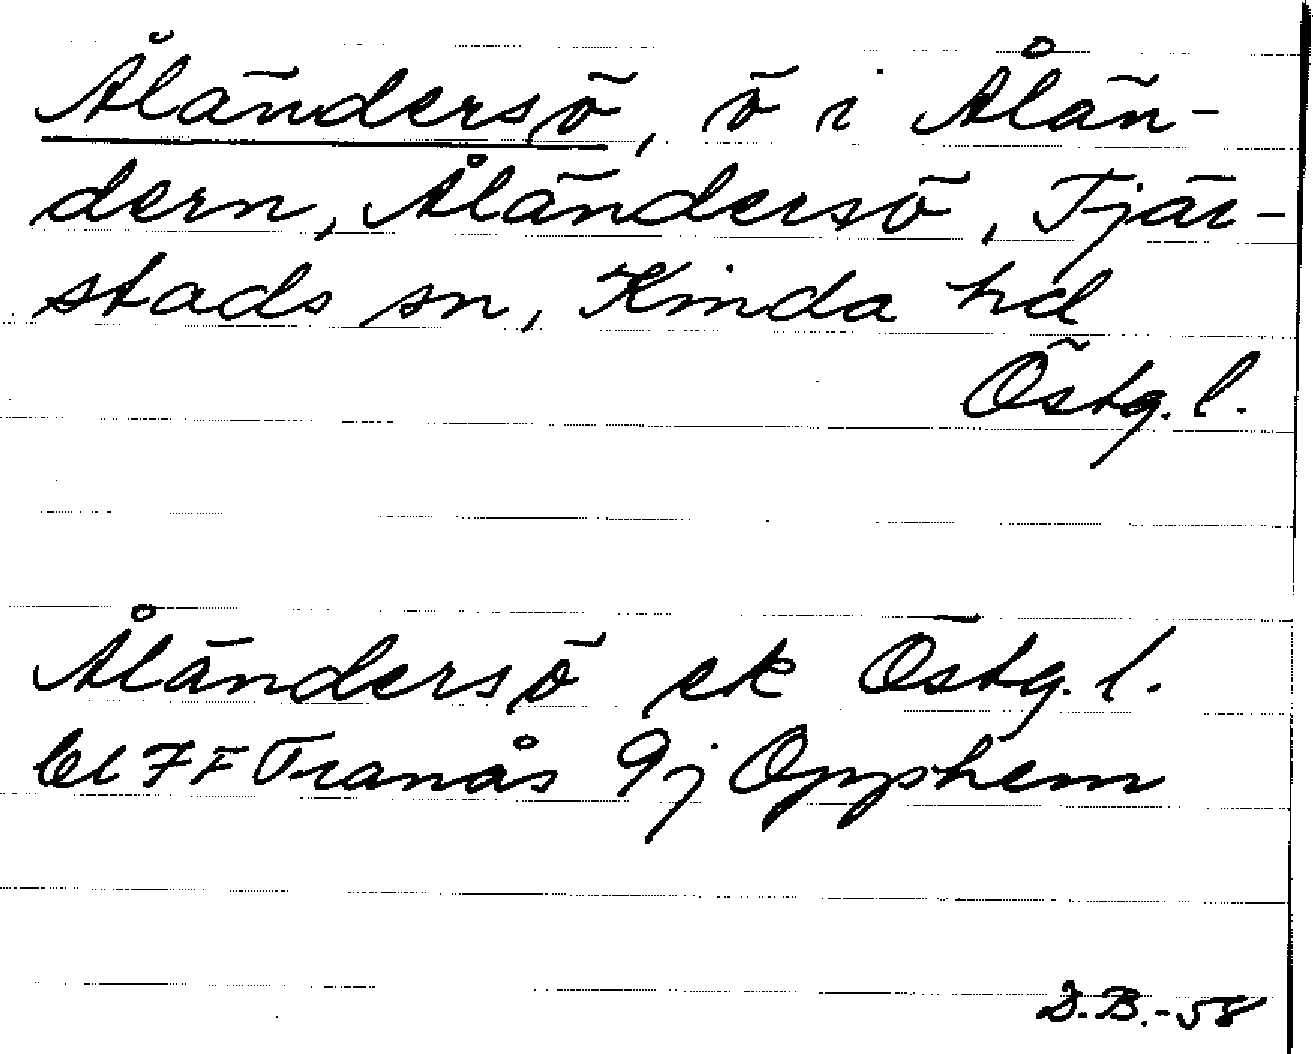 Åländersö, ö i Ålän-
dern, Åländersö, Tjär-
stads sn, Kinda hd
Östg. l.
Åländersö ek Östg. l.
bl 7F Tranås 9j Opphem
D.B.-58